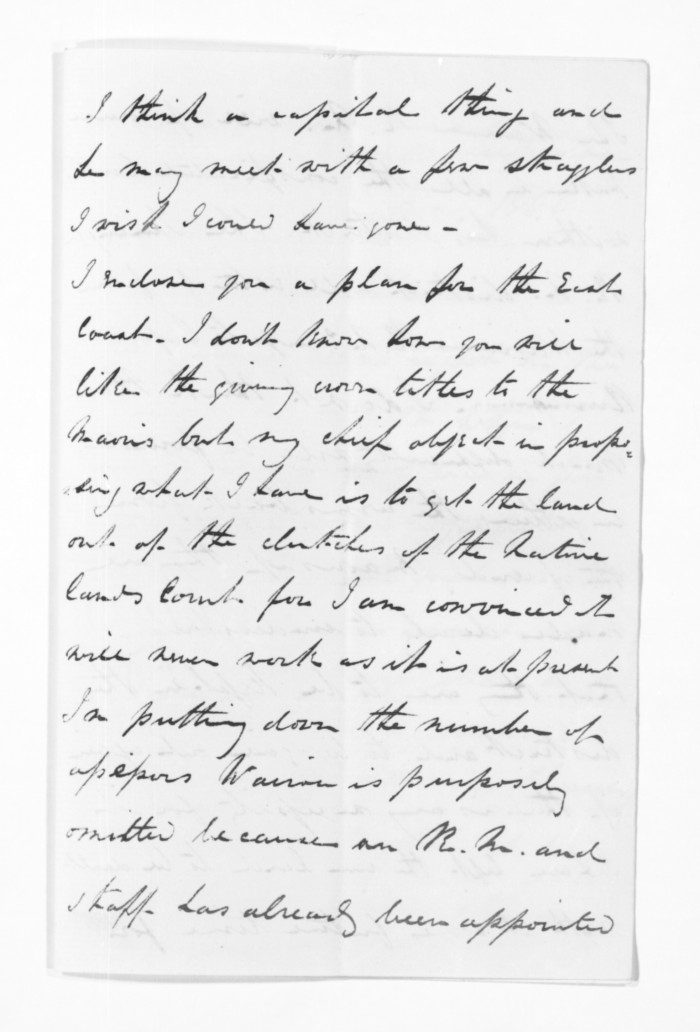 I think a capital thing and
he may meet with a few stragglers
I wish I could have gone -
I enclose you a plan for the East
Coast - I don't know how you will
like the giving crown titles to the
Maoris but my chief object in propo=
sing what I have is to get the land
out of the clutches of the Native
Lands Court for I am convinced it
will never work as it is at present
In putting down the number of
assessors Wairoa is purposely
omitted because an R.M. and
staff has already been appointed